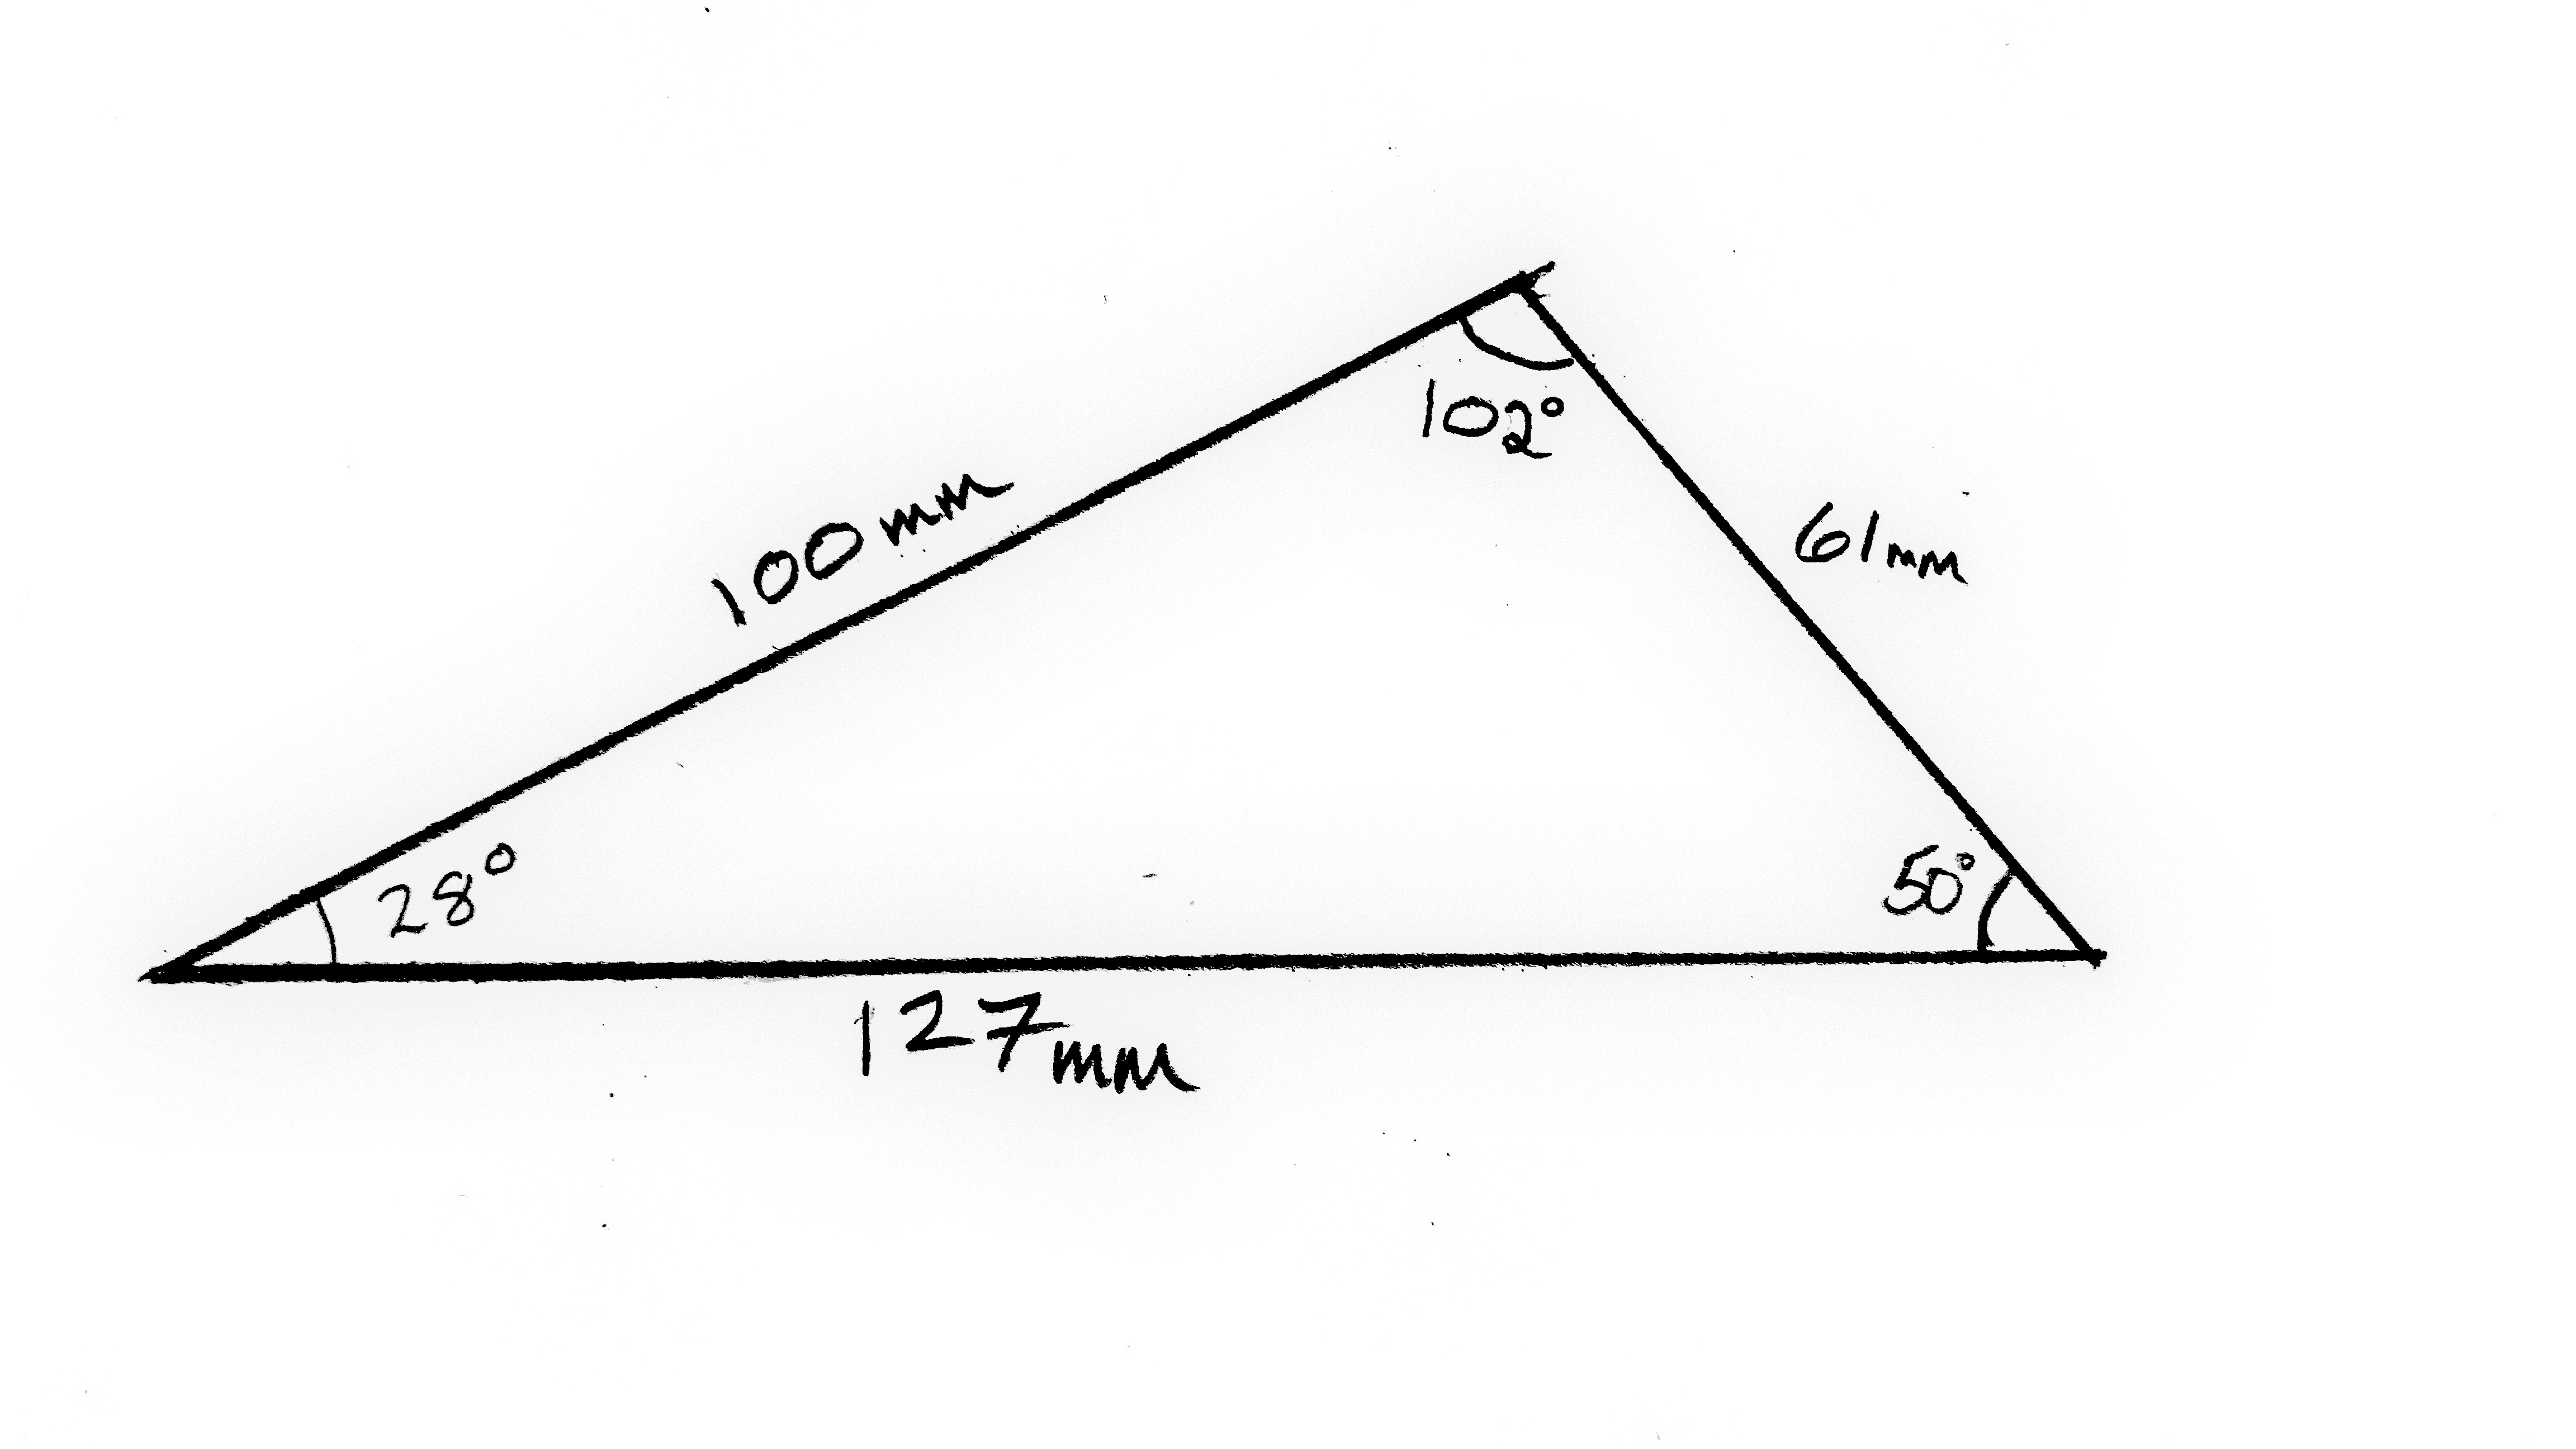 102°
100mm
61mm
28°
50°
127mm